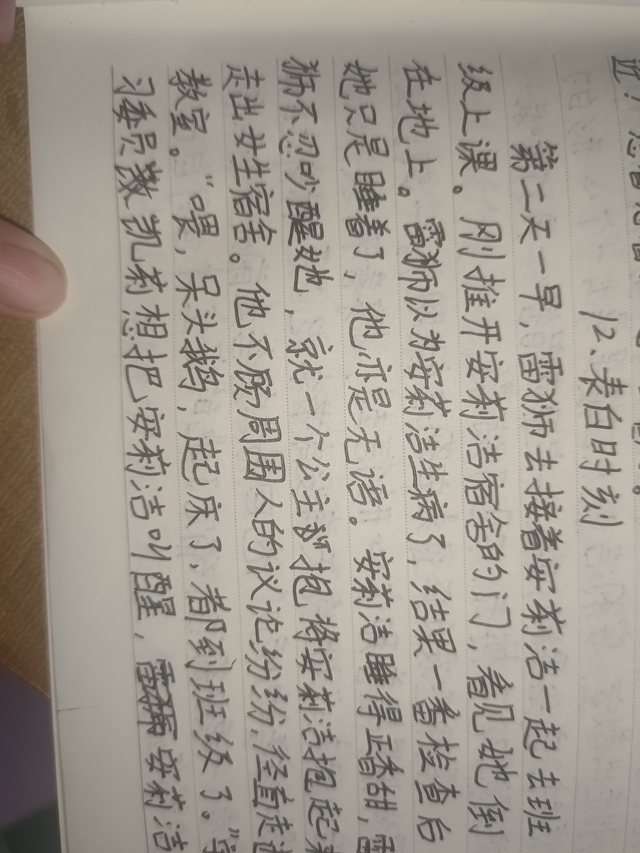 12、表白时刻
第二天一早，雷狮去接着安莉洁一起去班
级上课。刚推开安莉洁宿舍的门，看见她倒
在地上。雷狮以为安莉洁生病了，结果一番检查后
她只是睡着了，他亦是无语。安莉洁睡得正香甜，雷
狮不忍吵醒她，就一个公主抱将安莉洁抱起来
走出女生宿舍。他不顾周围人的议论纷纷，径直走进
教室。“喂，呆头鹅，起床了，都到班级了。”学
习委员数凯莉想把安莉洁叫醒，安莉洁